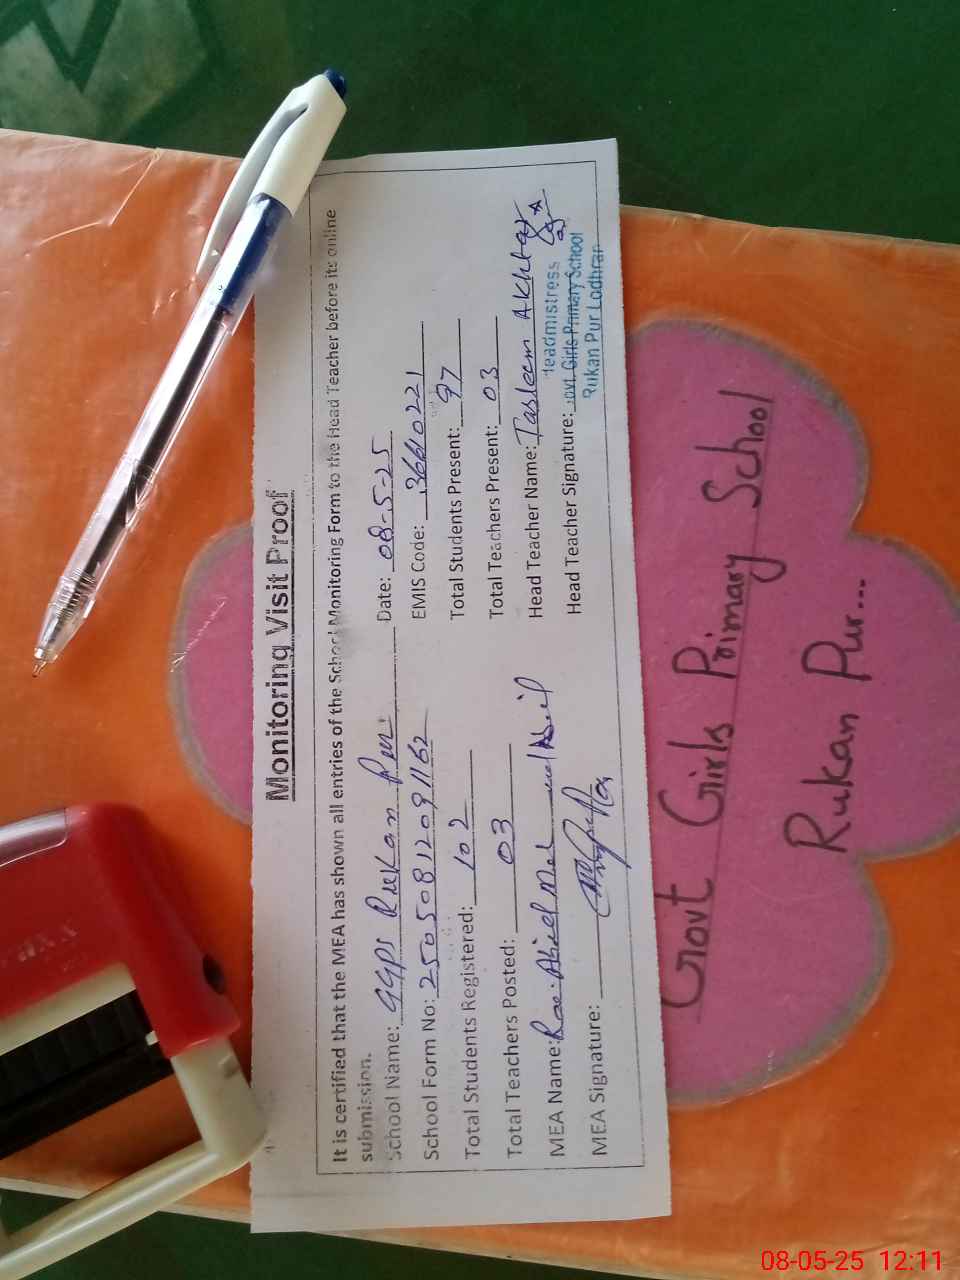 Monitoring Visit Proof
It is certified that the MEA has shown all entries of the School Monitoring Form to the Head Teacher before its online
submission.
School Name: GGPS Rukan Pur Date: 08-5-25
School Form No: 25050812091162 EMIS Code: 36610221
Total Students Registered: 102 Total Students Present: 97
Total Teachers Posted: 03 Total Teachers Present: 03
MEA Name: Head Teacher Name: Tasleem Akhtar
MEA Signature: Head Teacher Signature:
Headmistress
Govt. Girls Primary School
Rukan Pur Lodhran
Govt Girls Primary School
Rukan Pur...
08-05-25 12:11